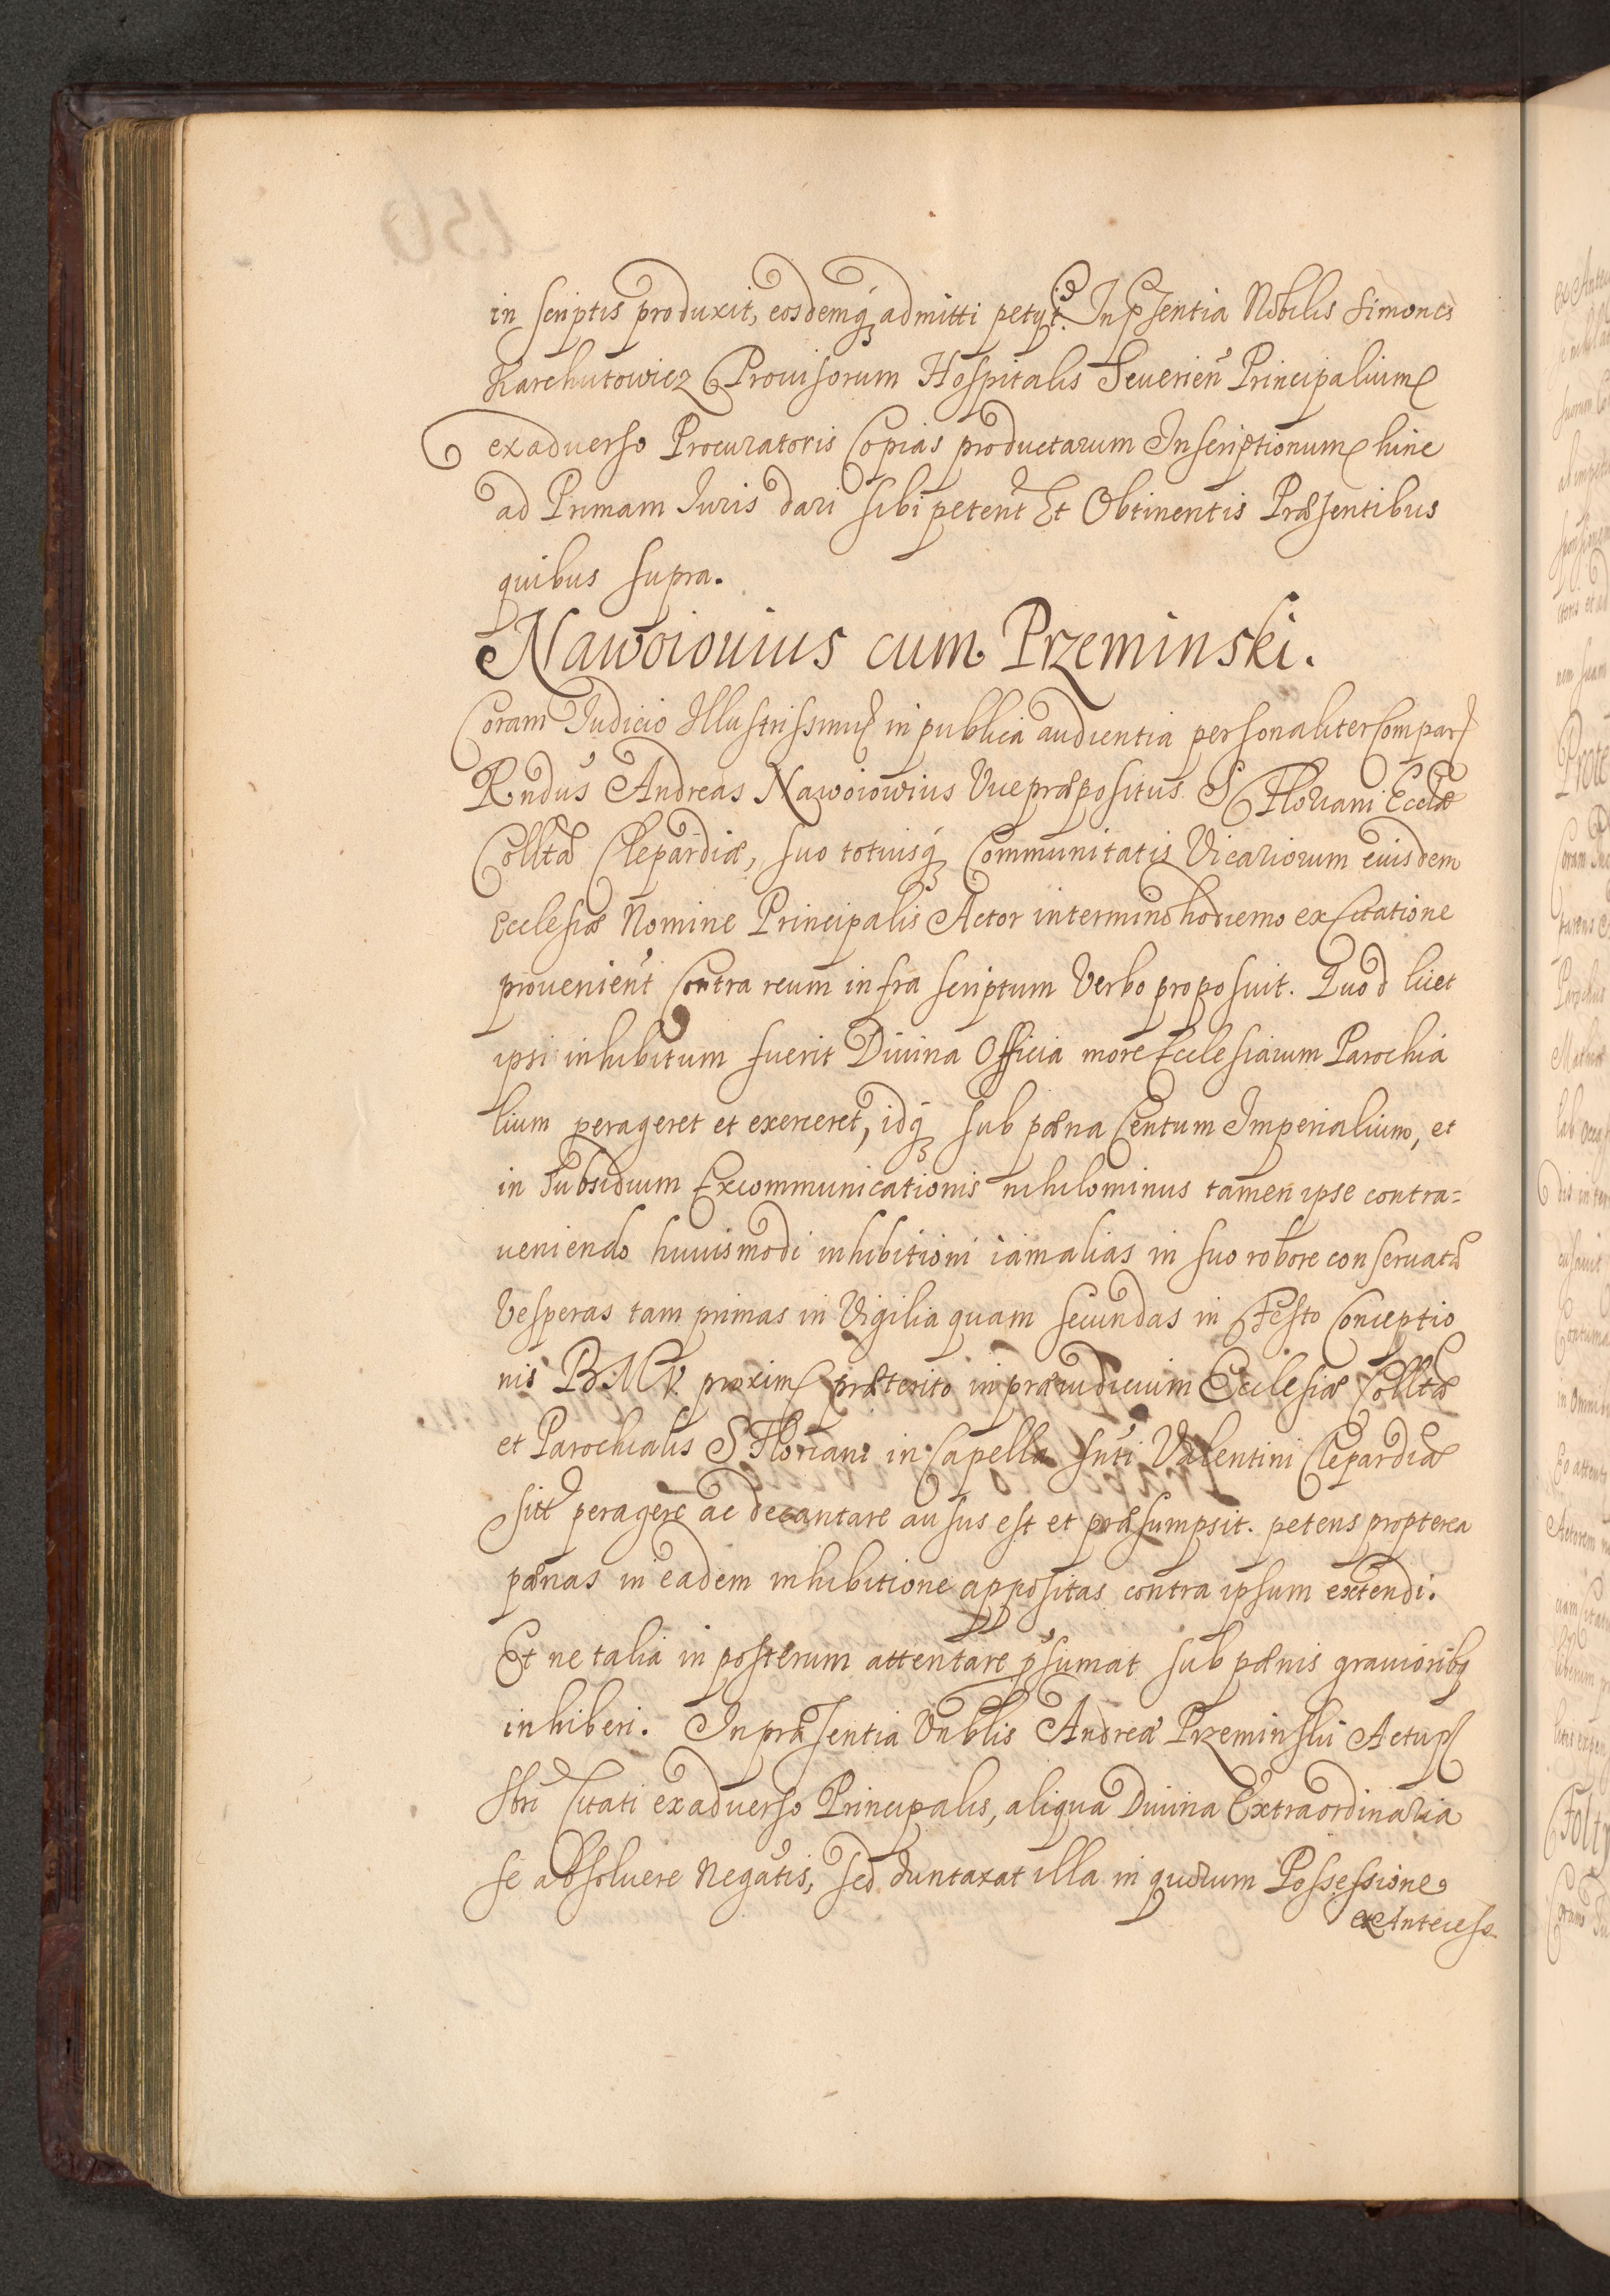 in scriptis produxit, eosdemq́ admitti petyt. In pñsentia Nobilis Simonis
Karchutowicz Prouisorum Hospitalis Seuerień Principalium
ex aduerso Procuratoris Copias productarum Inscriptionum hinc
ad Primam Iuris dari sibi peteñt Et Obtinentis Præsentibus
quibus supra.
Nawoiouius cum Przeminski.
Coram Iudicio Illustrissimi in publica audientia personaliter Compar
Rndus Andreas Nawoiowius Vicepræpositus S Floriani Ecclæ
Colltæ Clepardiæ, suo totiusq́ Communitatis Vicariorum eiusdem
Ecclesiæ Nomine Principalis Actor in termino hodierno ex Citatione
prouenieñt Contra reum infra scriptum Verbo proposuit. Quod licet
ipsi inhibitum fuerit Diuina Officia more Ecclesiarum Parochia
lium perageret et exerceret, idq́ sub pæna Centum Imperialium, et
in Subsidium Excommunicationis nihilominus tamen ipse contra=
ueniendo huiusmodi inhibitioni iam alias in suo robore conseruatæ
Vesperas tam primas in Vigilia quam secundas in Festo Conceptio
nis BMV. proxime præterito in præiudicium Ecclesiæ Colltæ
et Parochialis S Floriani in Capella Snti Valentini Clepardiæ
sitt peragere ac decantare ausus est et præsumpsit. petens propterea
pænas in eadem inhibitione appositas contra ipsum extendi.
Et ne talia in posterum attentare pŝumat sub pænis grauioribq
inhiberi. In præsentia Vnblis Andreæ Przeminskii Actu
Sbri Citati ex aduerso Principalis, aliqua Diuina Extraordinaria
se absoluere Negatis, sed duntaxat illa in quorum Possessione
ex Antecess